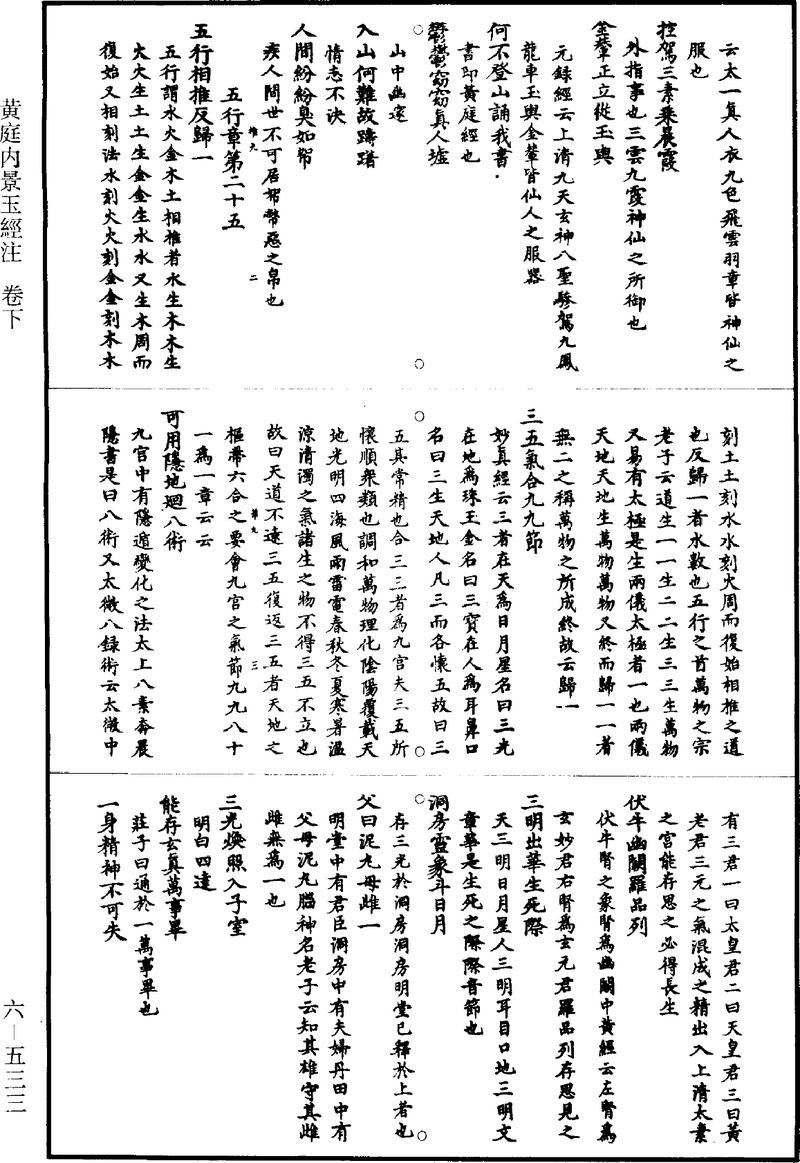 黄庭内景玉經注　卷下
云太一真人衣九色飛雲羽章皆神仙之
服也
控駕三素乗晨霞
外指事也三雲九霞神仙之所御也
金輦正立從玉輿
元録經云上清九天玄神八聖驂駕九鳳
龍車玉輿金輦皆仙人之服器
何不登山誦我書
書即黄庭經也
鬱鬱窈窈真人墟
山中幽邃
入山何難故躊躇
情志不決
人間紛紛臭如帤
疾人間世不可居帤幣惡之帛也
五行章第二十五
五行相推反歸一
五行謂水火金木土相推者水生木木生
火火生土土生金金生水水又生木周而
復始又相刻法水刻火火刻金金刻木木
刻土土刻水水刻火周而復始相推之道
也反歸一者水數也五行之首萬物之宗
老子云道生一一生二二生三三生萬物
又易有太極是生兩儀太極者一也兩儀
天地天地生萬物萬物又終而歸一一者
無二之稱萬物之所成終故云歸一
三五氣合九九節
妙真經云三者在天為日月星名曰三光
在地為珠玉金名曰三寶在人為耳鼻口
名曰三生天地人凡三而各懷五故曰三
五其常精也合三三者為九宮夫三五所
懷順衆類也調和萬物理化陰陽覆載天
地光明四海風雨雷電春秋冬夏寒暑温
涼清濁之氣諸生之物不得三五不立也
故曰天道不遠三五復返三五者天地之
樞帶六合之要會九宮之氣節九九八十
一為一章云云
可用隱地迴八術
九宮中有隱遁變化之法太上八素奔晨
隱書是曰八術又太微八録術云太微中
有三君一曰太皇君二曰天皇君三曰黄
老君三元之氣混成之精出入上清太素
之宮能存思之必得長生
伏牛幽闕羅品列
伏牛腎之象腎為幽闕中黄經云左腎為
玄妙君右腎為玄元君羅品列存思見之
三明出華生死際
天三明日月星人三明耳目口地三明文
章華是生死之際際音節也
洞房靈象斗日月
存三光於洞房洞房明堂已釋於上者也
父曰泥丸母雌一
明堂中有君臣洞房中有夫婦丹田中有
父母泥丸腦神名老子云知其雄守其雌
雌無為一也
三光煥照入子室
明白四達
能存玄真萬事畢
莊子曰通於一萬事畢也
一身精神不可失
六—五三三